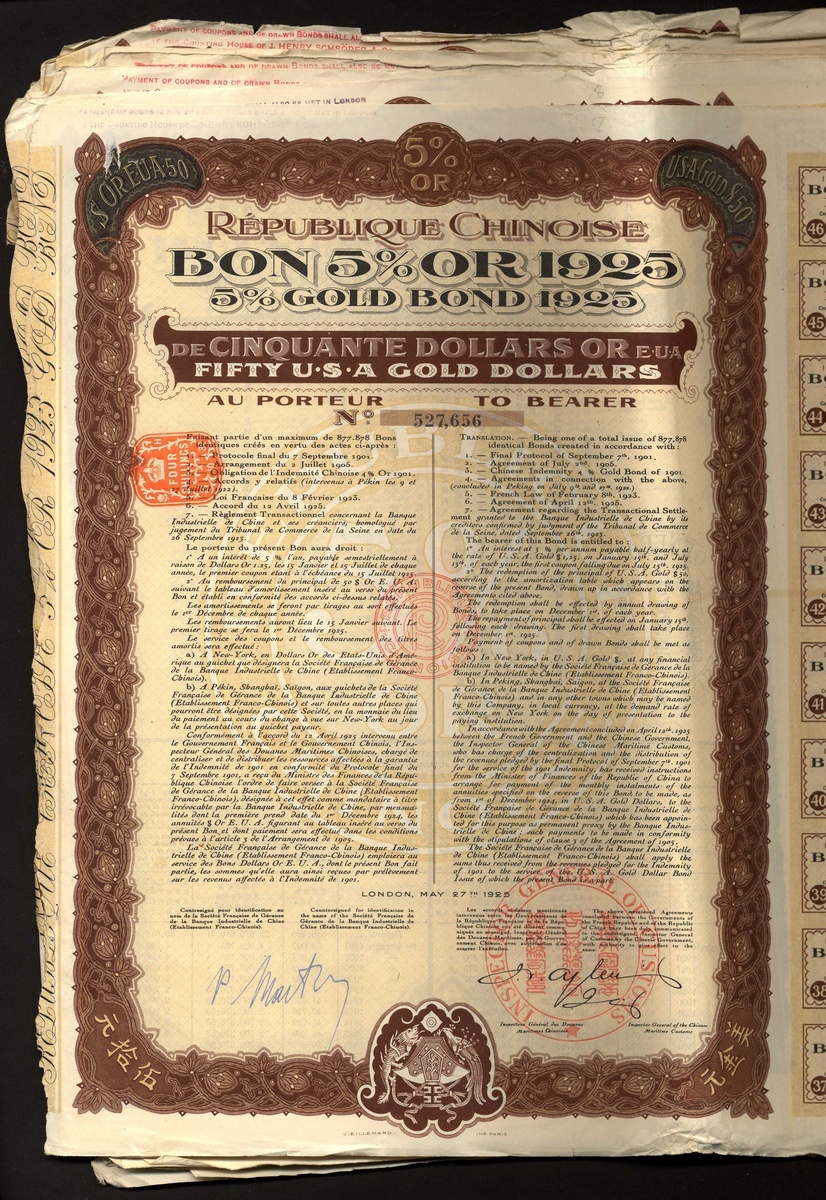 PAYMENT OF COUPONS AND OF DRAWN BONDS SHALL AL
THE COUNTING HOUSE OF J. HENRY SCHRÖDER &
PAYMENT OF COUPONS AND OF DRAWN BONDS SHALL ALSO BE M
PAYMENT OF COUPONS AND OF DRAWN BONDS
ALSO BE MET IN LONDON
5%
OR
$ OR E·U·A·50
U·S·A GOLD $50
RÉPUBLIQUE CHINOISE
BON 5% OR 1925
5% GOLD BOND 1925
DE CINQUANTE DOLLARS OR E·U·A
FIFTY U·S·A GOLD DOLLARS
AU PORTEUR TO BEARER
Nº 527,656
Faisant partie d'un maximum de 877.878 Bons
identiques créés en vertu des actes ci-après :
Protocole final du 7 Septembre 1901.
Arrangement du 2 Juillet 1905.
Obligation de l'Indemnité Chinoise 4 % Or 1901.
Accords y relatifs (intervenus à Pékin les 9 et
27 Juillet 1922).
5. — Loi Française du 8 Février 1923.
6. — Accord du 12 Avril 1925.
7. — Règlement Transactionnel concernant la Banque
Industrielle de Chine et ses créanciers, homologué par
jugement du Tribunal de Commerce de la Seine en date du
26 Septembre 1923.
Le porteur du présent Bon aura droit :
1° A un intérêt de 5 % l'an, payable semestriellement à
raison de Dollars Or 1.25, les 15 Janvier et 15 Juillet de chaque
année, le premier coupon étant à l'échéance du 15 Juillet 1925.
2° Au remboursement du principal de 50 $ Or E. U. A.
suivant le tableau d'amortissement inséré au verso du présent
Bon et établi en conformité des accords ci-dessus relatés.
Les amortissements se feront par tirages au sort effectués
le 1er Décembre de chaque année.
Les remboursements auront lieu le 15 Janvier suivant. Le
premier tirage se fera le 1er Décembre 1925.
Le service des coupons et le remboursement des titres
amortis sera effectué :
a) A New-York, en Dollars Or des Etats-Unis d'Amé-
rique au guichet que désignera la Société Française de Gérance
de la Banque Industrielle de Chine (Etablissement Franco-
Chinois).
b) A Pékin, Shanghaï, Saigon, aux guichets de la Société
Française de Gérance de la Banque Industrielle de Chine
(Etablissement Franco-Chinois) et sur toutes autres places qui
pourront être désignées par cette Société, en la monnaie du lieu
du paiement au cours du change à vue sur New-York au jour
de la présentation au guichet payeur.
Conformément à accord du 12 Avril 1925 intervenu entre
le Gouvernement Français et le Gouvernement Chinois, l'Ins-
pecteur Général des Douanes Maritimes Chinoises, chargé de
centraliser et de distribuer les ressources affectées à la garantie
de l'Indemnité de 1901 en conformité du Protocole final du
7 Septembre 1901, a reçu du Ministre des Finances de la Répu-
blique Chinoise l'ordre de faire verser à la Société Française
de Gérance de la Banque Industrielle de Chine (Etablissement
Franco-Chinois), désignée à cet effet comme mandataire à titre
irrévocable par la Banque Industrielle de Chine, par mensua-
lités dont la première prend date du 1er Décembre 1924, les
annuités $ Or E. U. A. figurant au tableau inséré au verso du
présent Bon et dont paiement sera effectué dans les conditions
prévues à l'article 5 de l'Arrangement de 1905.
La Société Française de Gérance de la Banque Indus-
trielle de Chine (Etablissement Franco-Chinois) emploiera au
service des Bons Dollars Or E. U. A., dont le présent Bon fait
partie, les sommes qu'elle aura ainsi reçues par prélèvement
sur les revenus affectés à l'Indemnité de 1901.
TRANSLATION. — Being one of a total issue of 877,878
identical Bonds created in accordance with :
1. — Final Protocol of September 7th, 1901.
2. — Agreement of July 2nd, 1905.
3. — Chinese Indemnity 4 % Gold Bond of 1901.
4. — Agreements in connection with the above,
(concluded in Peking on July 9th and 27th, 1922.)
5. — French Law of February 8th, 1923.
6. — Agreement of April 12th, 1925.
7. — Agreement regarding the Transactional Settle-
ment granted to the Banque Industrielle de Chine by its
creditors confirmed by judgment of the Tribunal de Commerce
de la Seine, dated September 26th, 1923.
The bearer of this Bond is entitled to :
1° An interest at 5 % per annum payable half-yearly at
the rate of U. S. A. Gold $ 1,25, on January 15th, and July
15th, of each year, the first coupon falling due on July 15th, 1925.
2° The redemption of the principal of U. S. A. Gold $ 50,
according to the amortization table which appears on the
reverse of the present Bond, drawn up in accordance with the
Agreements cited above.
The redemption shall be effected by annual drawing of
Bonds, to take place on December 1st, of each year.
The repayment of principal shall be effected on January 15th,
following each drawing. The first drawing shall take place
on December 1st, 1925.
Payment of coupons and of drawn Bonds shall be met as
follows :
a) In New York, in U. S. A. Gold $, at any financial
institution to be named by the Société Française de Gérance de la
Banque Industrielle de Chine (Etablissement Franco-Chinois).
b) In Peking, Shanghai, Saigon, at the Société Française
de Gérance de la Banque Industrielle de Chine (Etablissement
Franco-Chinois) and in any other towns which may be named
by this Company, in local currency, at the demand rate of
exchange on New York on the day of presentation to the
paying institution.
In accordance with the Agreement concluded on April 12th, 1925
between the French Government and the Chinese Government,
the Inspector General of the Chinese Maritime Customs,
who has charge of the centralization and the distribution of
the revenues pledged by the final Protocol of September 7th, 1901
for the service of the 1901 Indemnity, has received instructions
from the Minister of Finances of the Republic of China to
arrange for payment of the monthly instalments of the
annuities specified on the reverse of this Bond to be made, as
from 1st of December 1924, in U. S. A. Gold Dollars, to the
Société Française de Gérance de la Banque Industrielle de
Chine (Etablissement Franco-Chinois) which has been appoin-
ted for this purpose as permanent proxy by the Banque Indus-
trielle de Chine ; such payments to be made in conformity
with the stipulations of clause 5 of the Agreement of 1905.
The Société Française de Gérance de la Banque Industrielle
de Chine (Etablissement Franco-Chinois) shall apply the
sums thus received from the revenues pledged for the Indemnity
of 1901 to the service of the U. S. A. Gold Dollar Bond
Issue of which the present Bond is a part.
LONDON, MAY 27TH 1925
Contresigné pour identification au
nom de la Société Française de Gérance
de la Banque Industrielle de Chine
(Etablissement Franco-Chinois).
Countersigned for identification in
the name of the Société Française de
Gérance de la Banque Industrielle de
Chine (Etablissement Franco-Chinois).
INSPECTOR GENERAL OF CUSTOMS
Inspecteur Général des Douanes
Maritimes Chinoises
Inspector General of the Chinese
Maritime Customs
FOUR
元拾伍
元金美
VIEILLEMARD IMP. PARIS
46
45
44
43
42
41
40
39
38
37